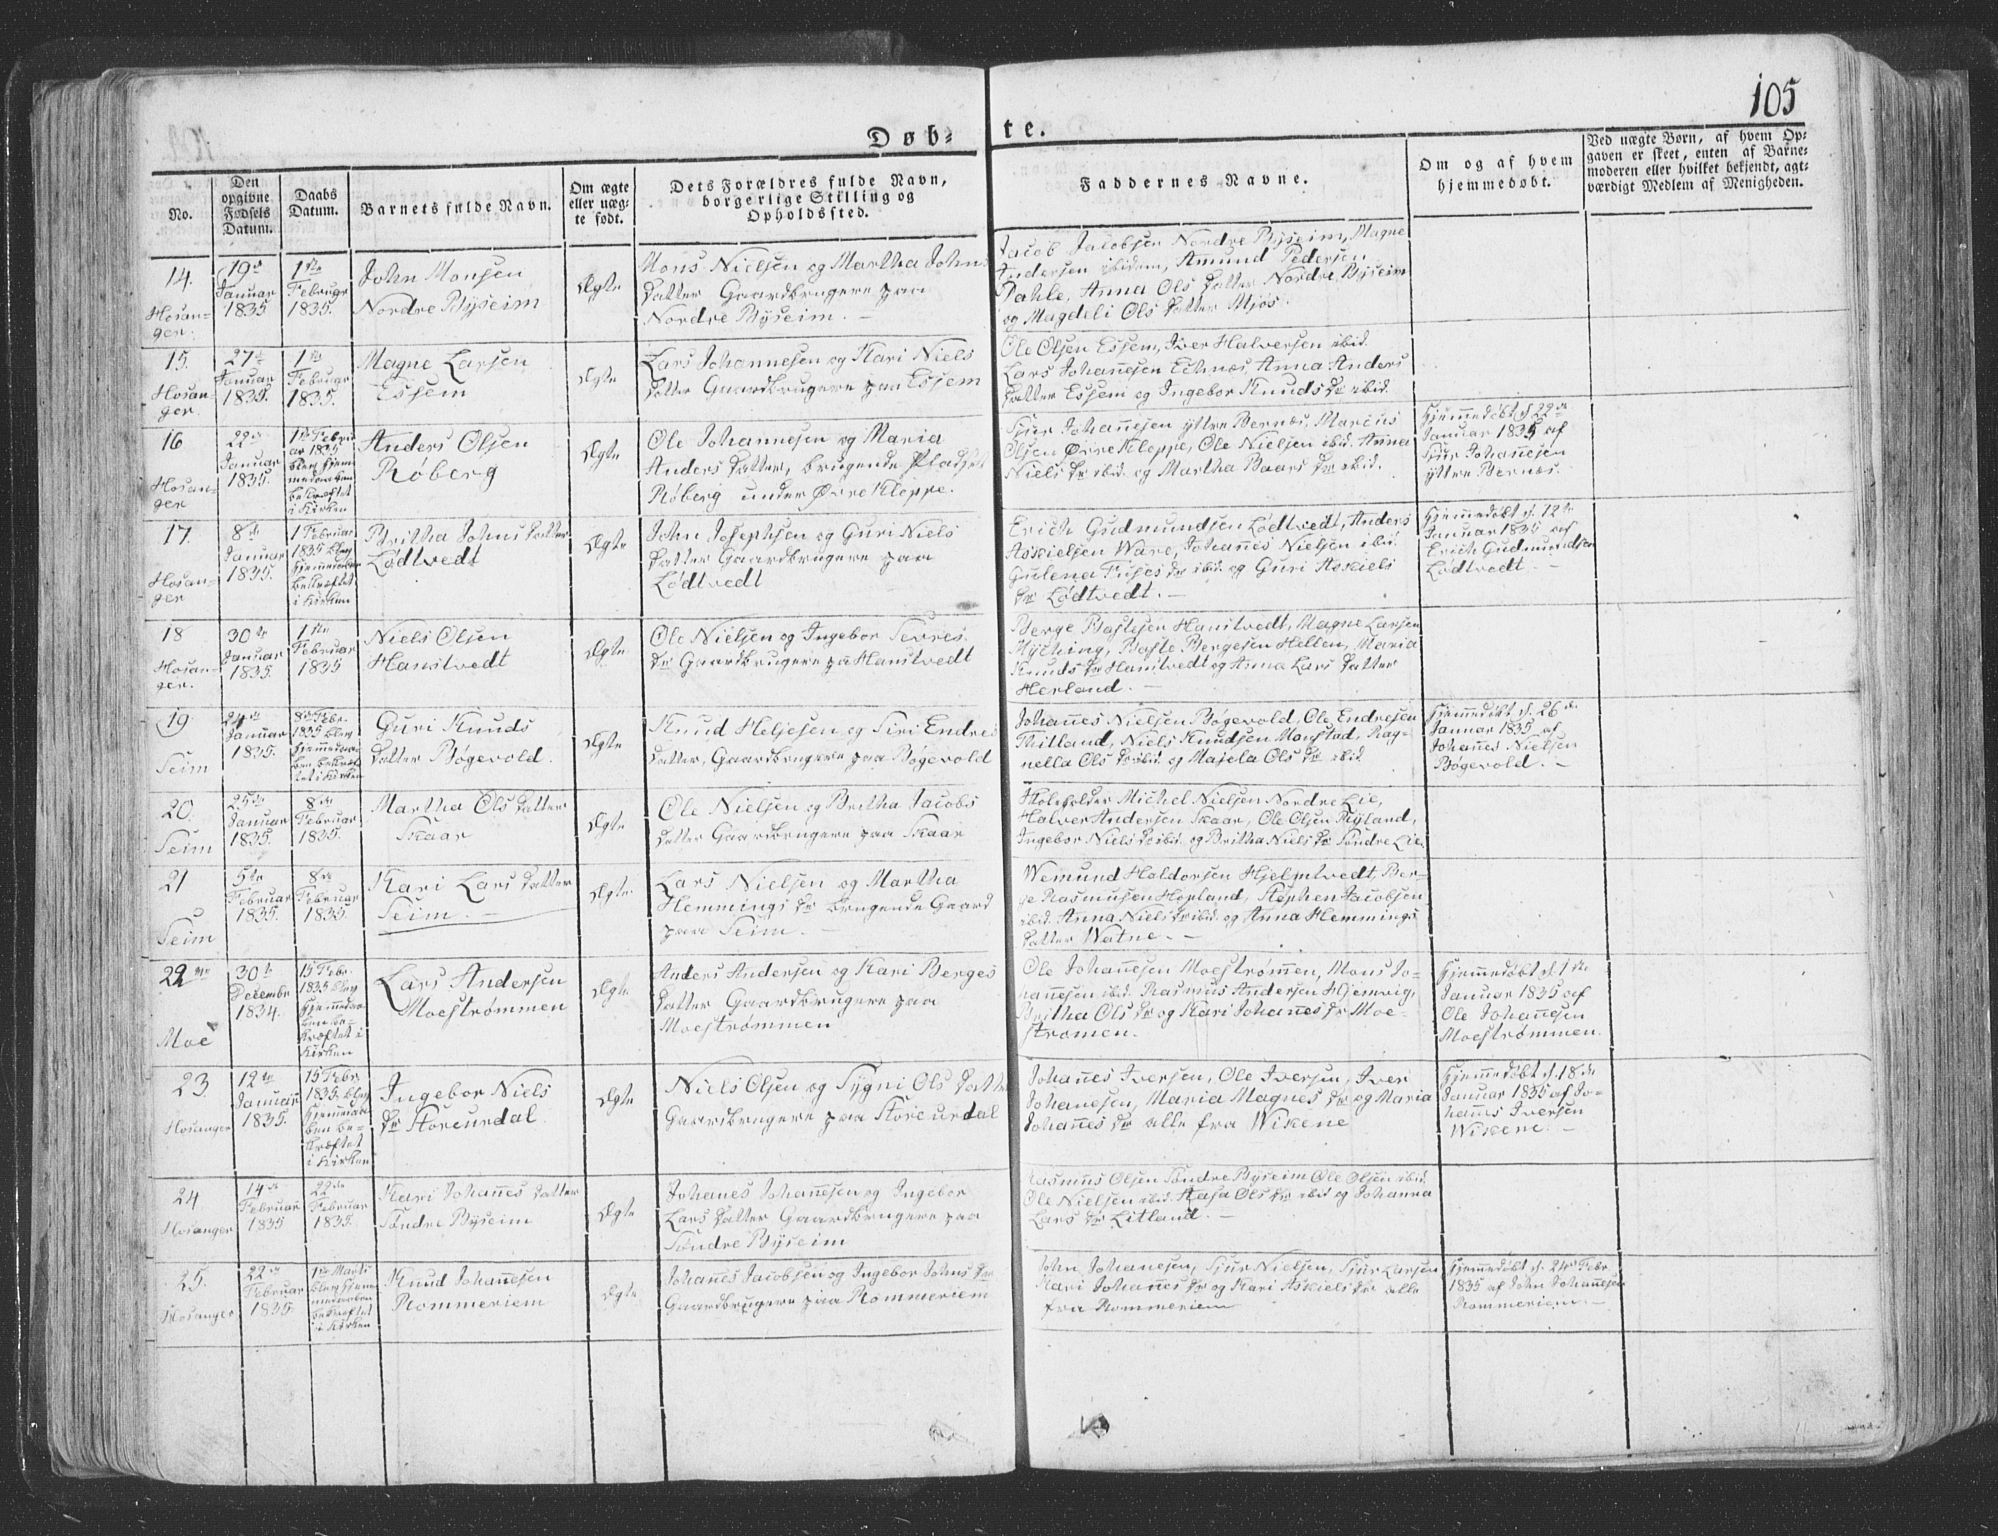 105
Døb-
te.
No.
Den opgivne Fødsels Datum.
Daabs Datum.
Barnets fulde Navn.
Om ægte eller uægte født.
Dets Forældres fulde Navn, borgerlige Stilling og Opholdssted.
Faddernes Navne.
Om og af hvem hjemmedøbt.
Ved uægte Børn, af hvem Opgaven er skeet, enten af Barnemoderen eller hvilket bekjendt, agtværdigt Medlem af Menigheden.
14.
Hosanger.
19de Januar 1835
1ste Februar 1835.
John Monsen
Nordre Byseim
Ægte
Mons Nielsen og Martha Johns
Datter Gaardbrugere paa
Nordre Byseim. -
Jacob Jacobsen Nordre Byseim, Magne
Andersen ibidem, Amund Pedersen
Dahle, Anna Ols Datter Nordre Byseim
og Magdeli Ols Datter Mjøs.
15.
Hosanger
27de Januar 1835.
1ste Februar 1835.
Magne Larsen
Essem
Ægte
Lars Johannesen og Kari Niels
Datter Gaardbrugere paa Essem
Ole Olsen Essem, Iver Halversen ibid.
Lars Johanesen Eknæs Anna Anders
Datter Essem og Ingebor Knuds Dr ibid.
16
Hosanger
22de Januar 1835.
1ste Februar 1835 blev hjemmedaaben bekræftet i Kirken
Anders Olsen
Røberg
Ægte
Ole Johannesen og Maria
Anders Datter, brugende Pladset
Røberg under Øvre Kleppe.
Sjur Johanesen yttre Bernæs, Marcus
Olsen Øvre Kleppe, Ole Nielsen ibid. Anna
Niels Dr ibid. og Martha Baars Dr ibid.
Hjemmedøbt d. 22de
Januar 1835 af
Sjur Johanesen
yttre Bernæs.
17.
Hosanger
8de Januar 1835.
1 Februar 1835 blev hjemmedaaben bekræftet i Kirken
Britha Johns Datter
Lødtvedt
Ægte
John Josephsen og Guri Niels
Datter Gaardbrugere paa
Lødtvedt
Erich Gudmundsen Lødtvedt, Anders
Askielsen Ware, Johanes Nielsen ibid.
Gulena Dr ibid. og Guri Askiels
Dr Lødtvedt. -
Hjemmedøbt d. 12te
Januar 1835 af
Erich Gudmundsen
Lødtvedt. -
18
Hosanger.
30te Januar 1835.
1ste Februar 1835
Niels Olsen
Hanstvedt
Ægte
Ole Nielsen og Ingebor Sevres
Dr Gaardbrugere paa Hanstvedt
Berge Hanstvedt, Magne Larsen
Mycking, Bergesen Hellen, Maria
Knuds Dr Hanstvedt og Anna Lars Datter
Herland. -
19
Seim
24de Januar 1835.
8de Febr. 1835 blev hjemmedaaben bekræftet i Kirken
Guri Knuds
Datter Bøgevold.
Ægte
Knud Heljesen og Siri Endres
Datter, Gaardbrugere paa Bøgevold
Johanes Nielsen Bøgevold, Ole Endresen
Titland, Niels Knudsen Monstad, Rag-
nella Ols Dr ibid. og Majela Ols Dr ibid
Hjemmedøbt d. 26de
Januar 1835 af
Johanes Nielsen
Bøgevold. -
20.
Seim
25de Januar 1835.
8de Februar 1835.
Martha Ols Datter
Skaar
Ægte
Ole Nielsen og Britha Jacobs
Datter Gaardbrugere paa Skaar
Holeholder Michel Nielsen Nordre Lie,
Halver Andersen Skaar, Ole Olsen Ryland,
Ingebor Niels Dr ibid. og Britha Niels Dr Søndre Lie.
21
Seim
5te Februar 1835.
8de Februar 1835.
Kari Lars Datter
Seim. -
Ægte
Lars Nielsen og Martha
Hemmings Dr brugende Gaard
paa Seim. -
Wemund Haldorsen Hjelmtvedt, Ber-
ge Rasmusen Hopland, Stephen Jacobsen
ibid. Anna Niels Dr ibid. og Anna Hemmings
Datter Watne. -
22
Moe
30te Decembr 1834.
15 Febr. 1835 blev hjemmedaaben bekræftet i Kirken
Lars Andersen
Moestrømmen
Ægte
Anders Andersen og Kari Berges
Datter Gaardbrugere paa
Moestrømmen
Ole Johanesen Moestrømmen, Mons Jo-
hanesen ibid. Rasmus Andersen Hjemvig,
Britha Ols Dr og Kari Johanes Dr Moe-
strømen.
Hjemmedøbt d. 1ste
Januar 1835 af
Ole Johanesen
Moestrømmen.
23.
Hosanger
12te Januar 1835.
15 Febr. 1835 blev hjemmedaaben bekræftet i Kirken
Ingebor Niels
Dr Storeurdal
Ægte
Niels Olsen og Sygni Ols Datter
Gaardbrugere paa Storeurdal
Johanes Iversen, Ole Iversen, Iver
Johanesen, Maria Magnes Dr og Maria
Johanes Dr alle fra Wikene
Hjemmedøbt d. 18de
Januar 1835 af Jo-
hanes Iversen
Wikene. -
24
Hosanger
14de Februar 1835
22de Februar 1835.
Kari Johanes Datter
Søndre Byseim
Ægte
Johanes Johanesen og Ingebor
Lars Datter Gaardbrugere paa
Søndre Byseim
Rasmus Olsen Søndre Byseim Ole Olsen ibid.
Ole Nielsen ibid. Aasa Ols Dr ibid og Johanna
Lars Dr Litland. -
25.
Hosanger
22de Februar 1835.
1ste Marti blev hjemmedaaben bekræftet i Kirken
Knud Johanesen
Rommeriem
Ægte
Johanes Jacobsen og Ingebor Johns Dr
Gaardbrugere paa Rommeriem
John Johanesen, Sjur Nielsen, Sjur Larsen
Kari Johanes Dr og Kari Askiels Dr alle
fra Rommeriem
Hjemmedøbt d. 24de Febr
1835 af John Johanesen
Rommeriem. -